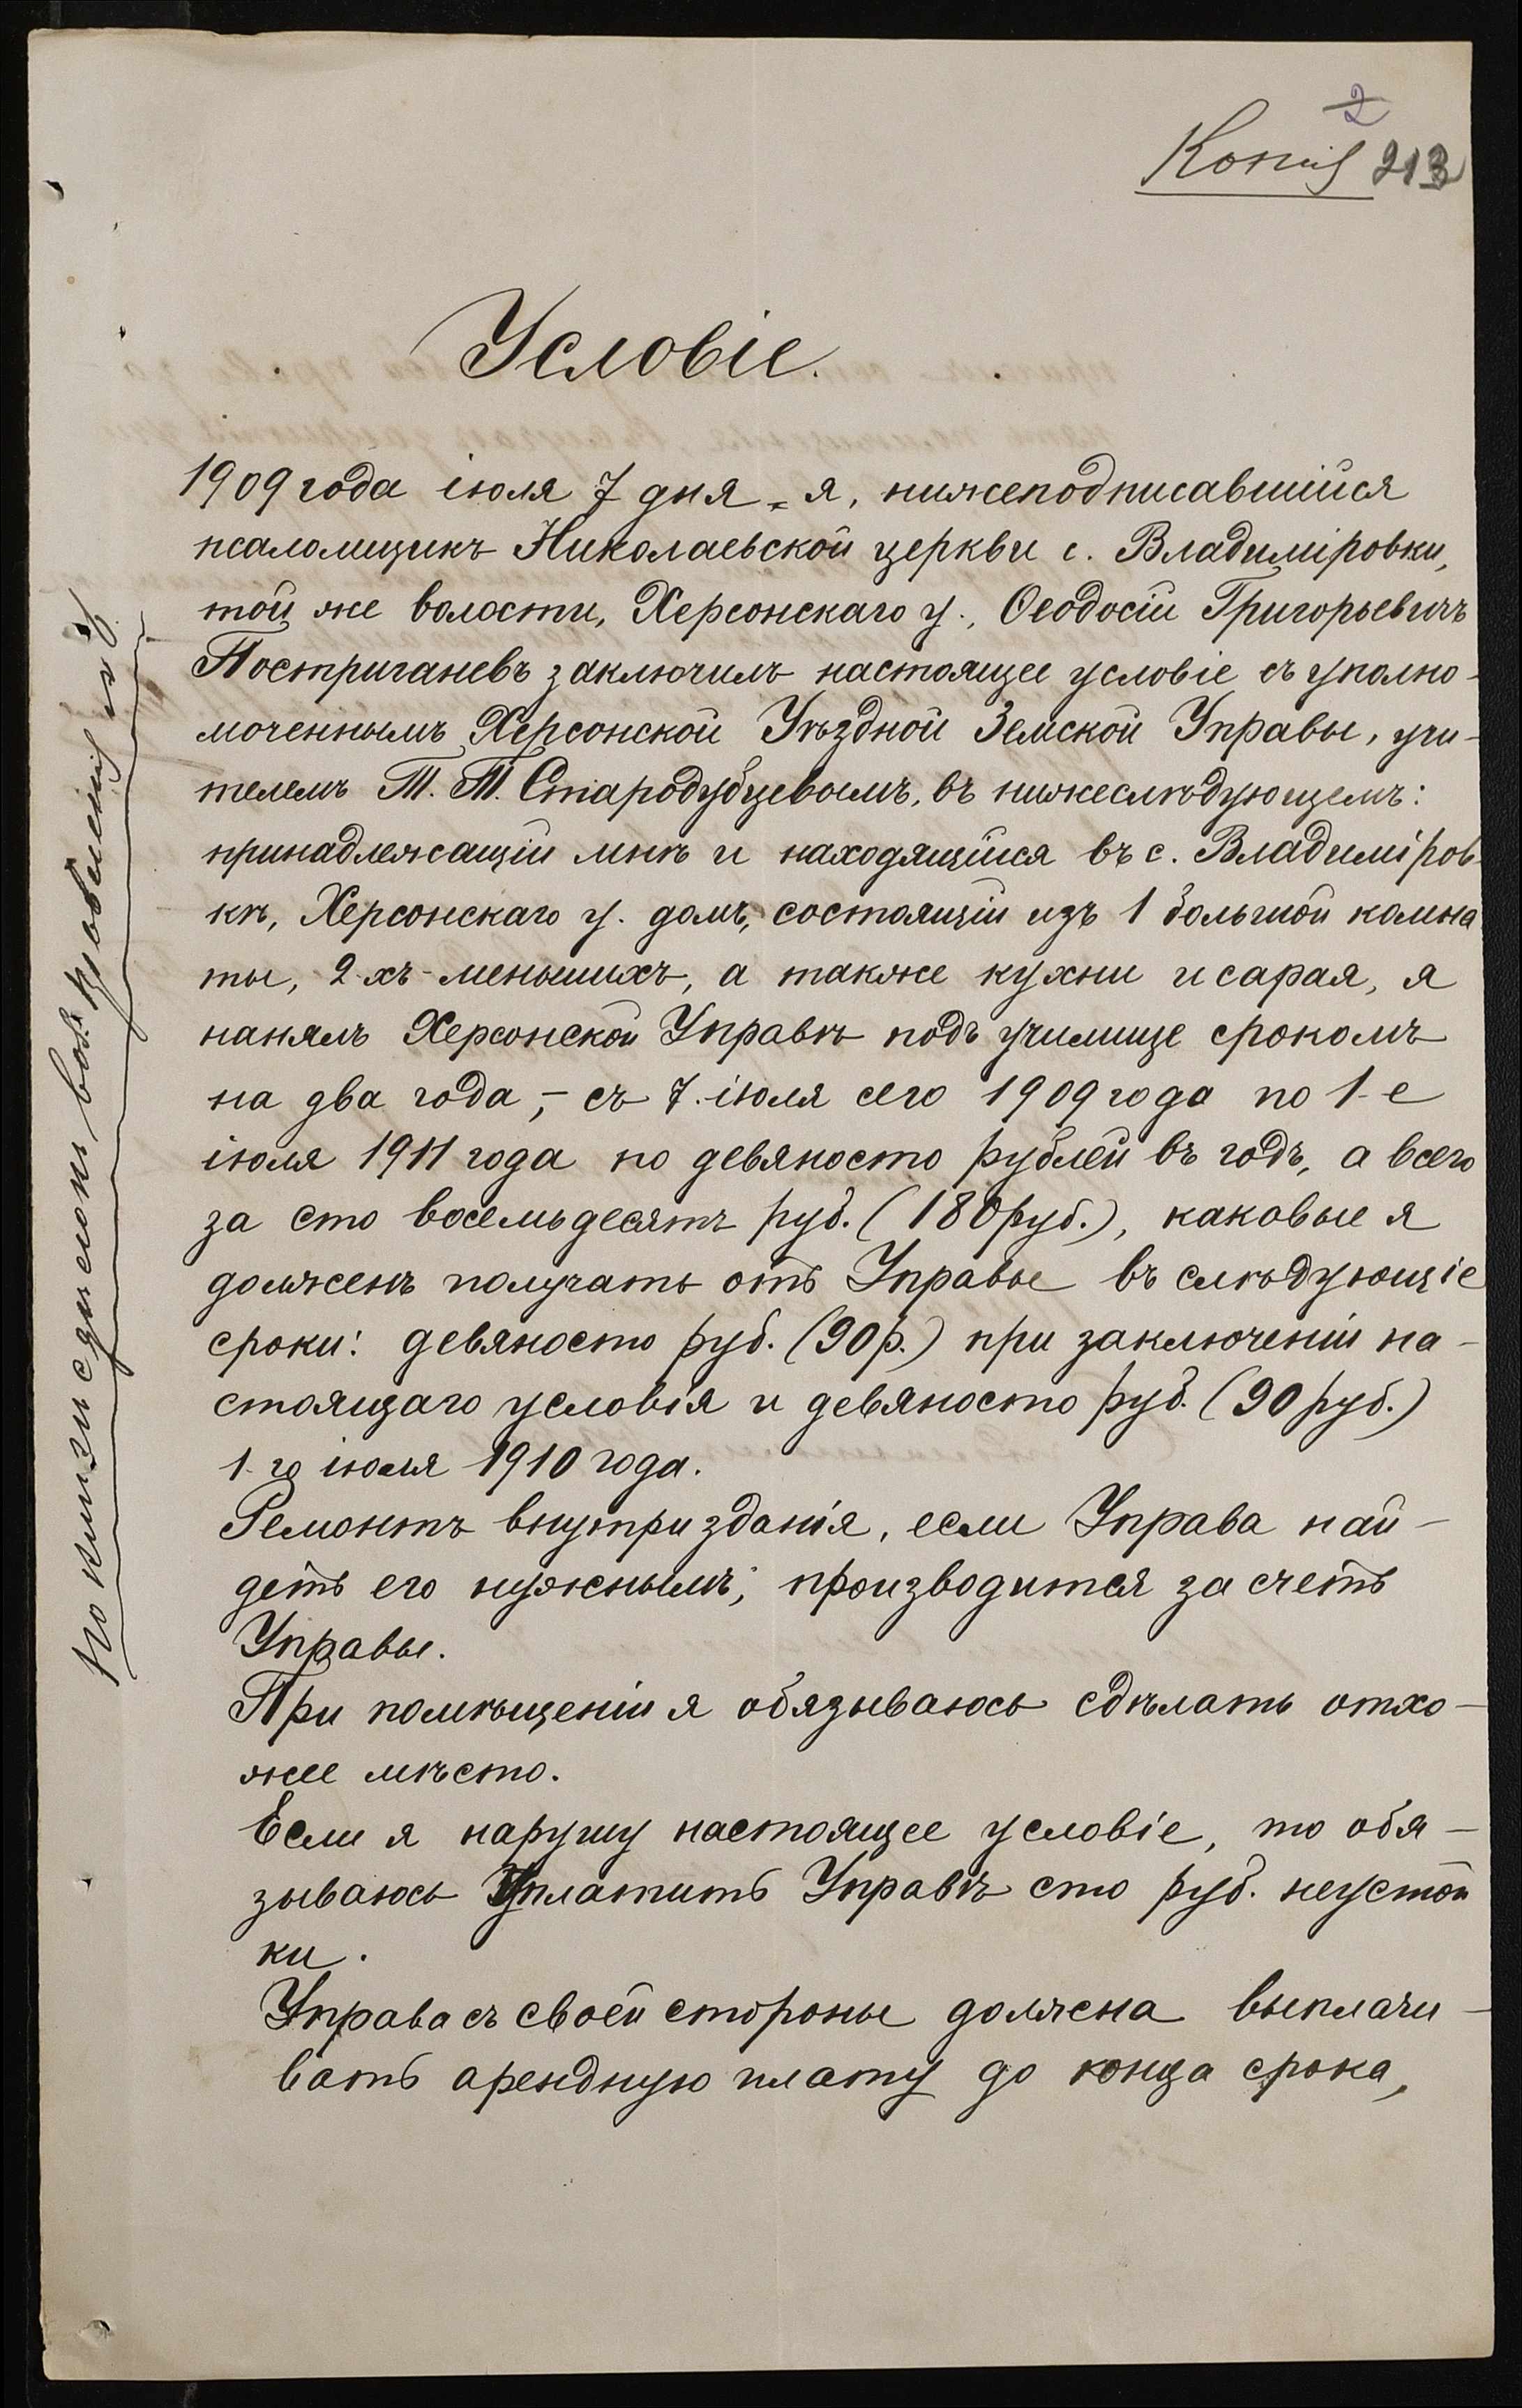 2
Копія 213
Условіе.
1909 года іюля 7 дня - я, нижеподписавшійся
псаломщикъ Николаевской церкви с. Владиміровки,
той же волости, Херсонскаго у., Ѳеодосій Григорьевичъ
Постриганевъ заключилъ настоящее условіе съ уполно-
моченнымъ Херсонской Уѣздной Земской Управы, учи-
телемъ Т. Т. Стародубцевымъ, въ нижеслѣдующемъ:
принадлежащій мнѣ и находящійся въ с. Владиміров-
кѣ, Херсонскаго у. домъ, состоящій изъ 1 большой комна
ты, 2-хъ меньшихъ, а также кухни и сарая, я
нанялъ Херсонской Управѣ подъ училище срокомъ
на два года, - съ 7 іюля сего 1909 года по 1-е
іюля 1911 года по девяносто рублей въ годъ, а всего
за сто восемьдесятъ руб. (180 руб.), каковые я
долженъ получать отъ Управы въ слѣдующіе
сроки: девяносто руб. (90 р.) при заключеніи на-
стоящаго условія и девяносто руб. (90 руб.)
1-го іюля 1910 года.
Ремонтъ внутри зданія, если Управа най-
детъ его нужнымъ, производится за счетъ
Управы.
При помѣщеніи я обязываюсь сдѣлать отхо-
жее мѣсто.
Если я нарушу настоящее условіе, то обя-
зываюсь уплатить Управѣ сто руб. неустой
ки.
Управа съ своей стороны должна выплачи-
вать арендную плату до конца срока,